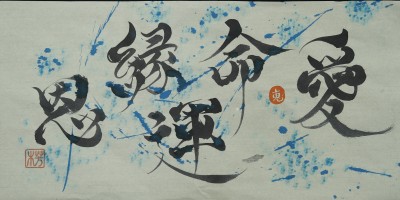 愛
命
運
縁
恩